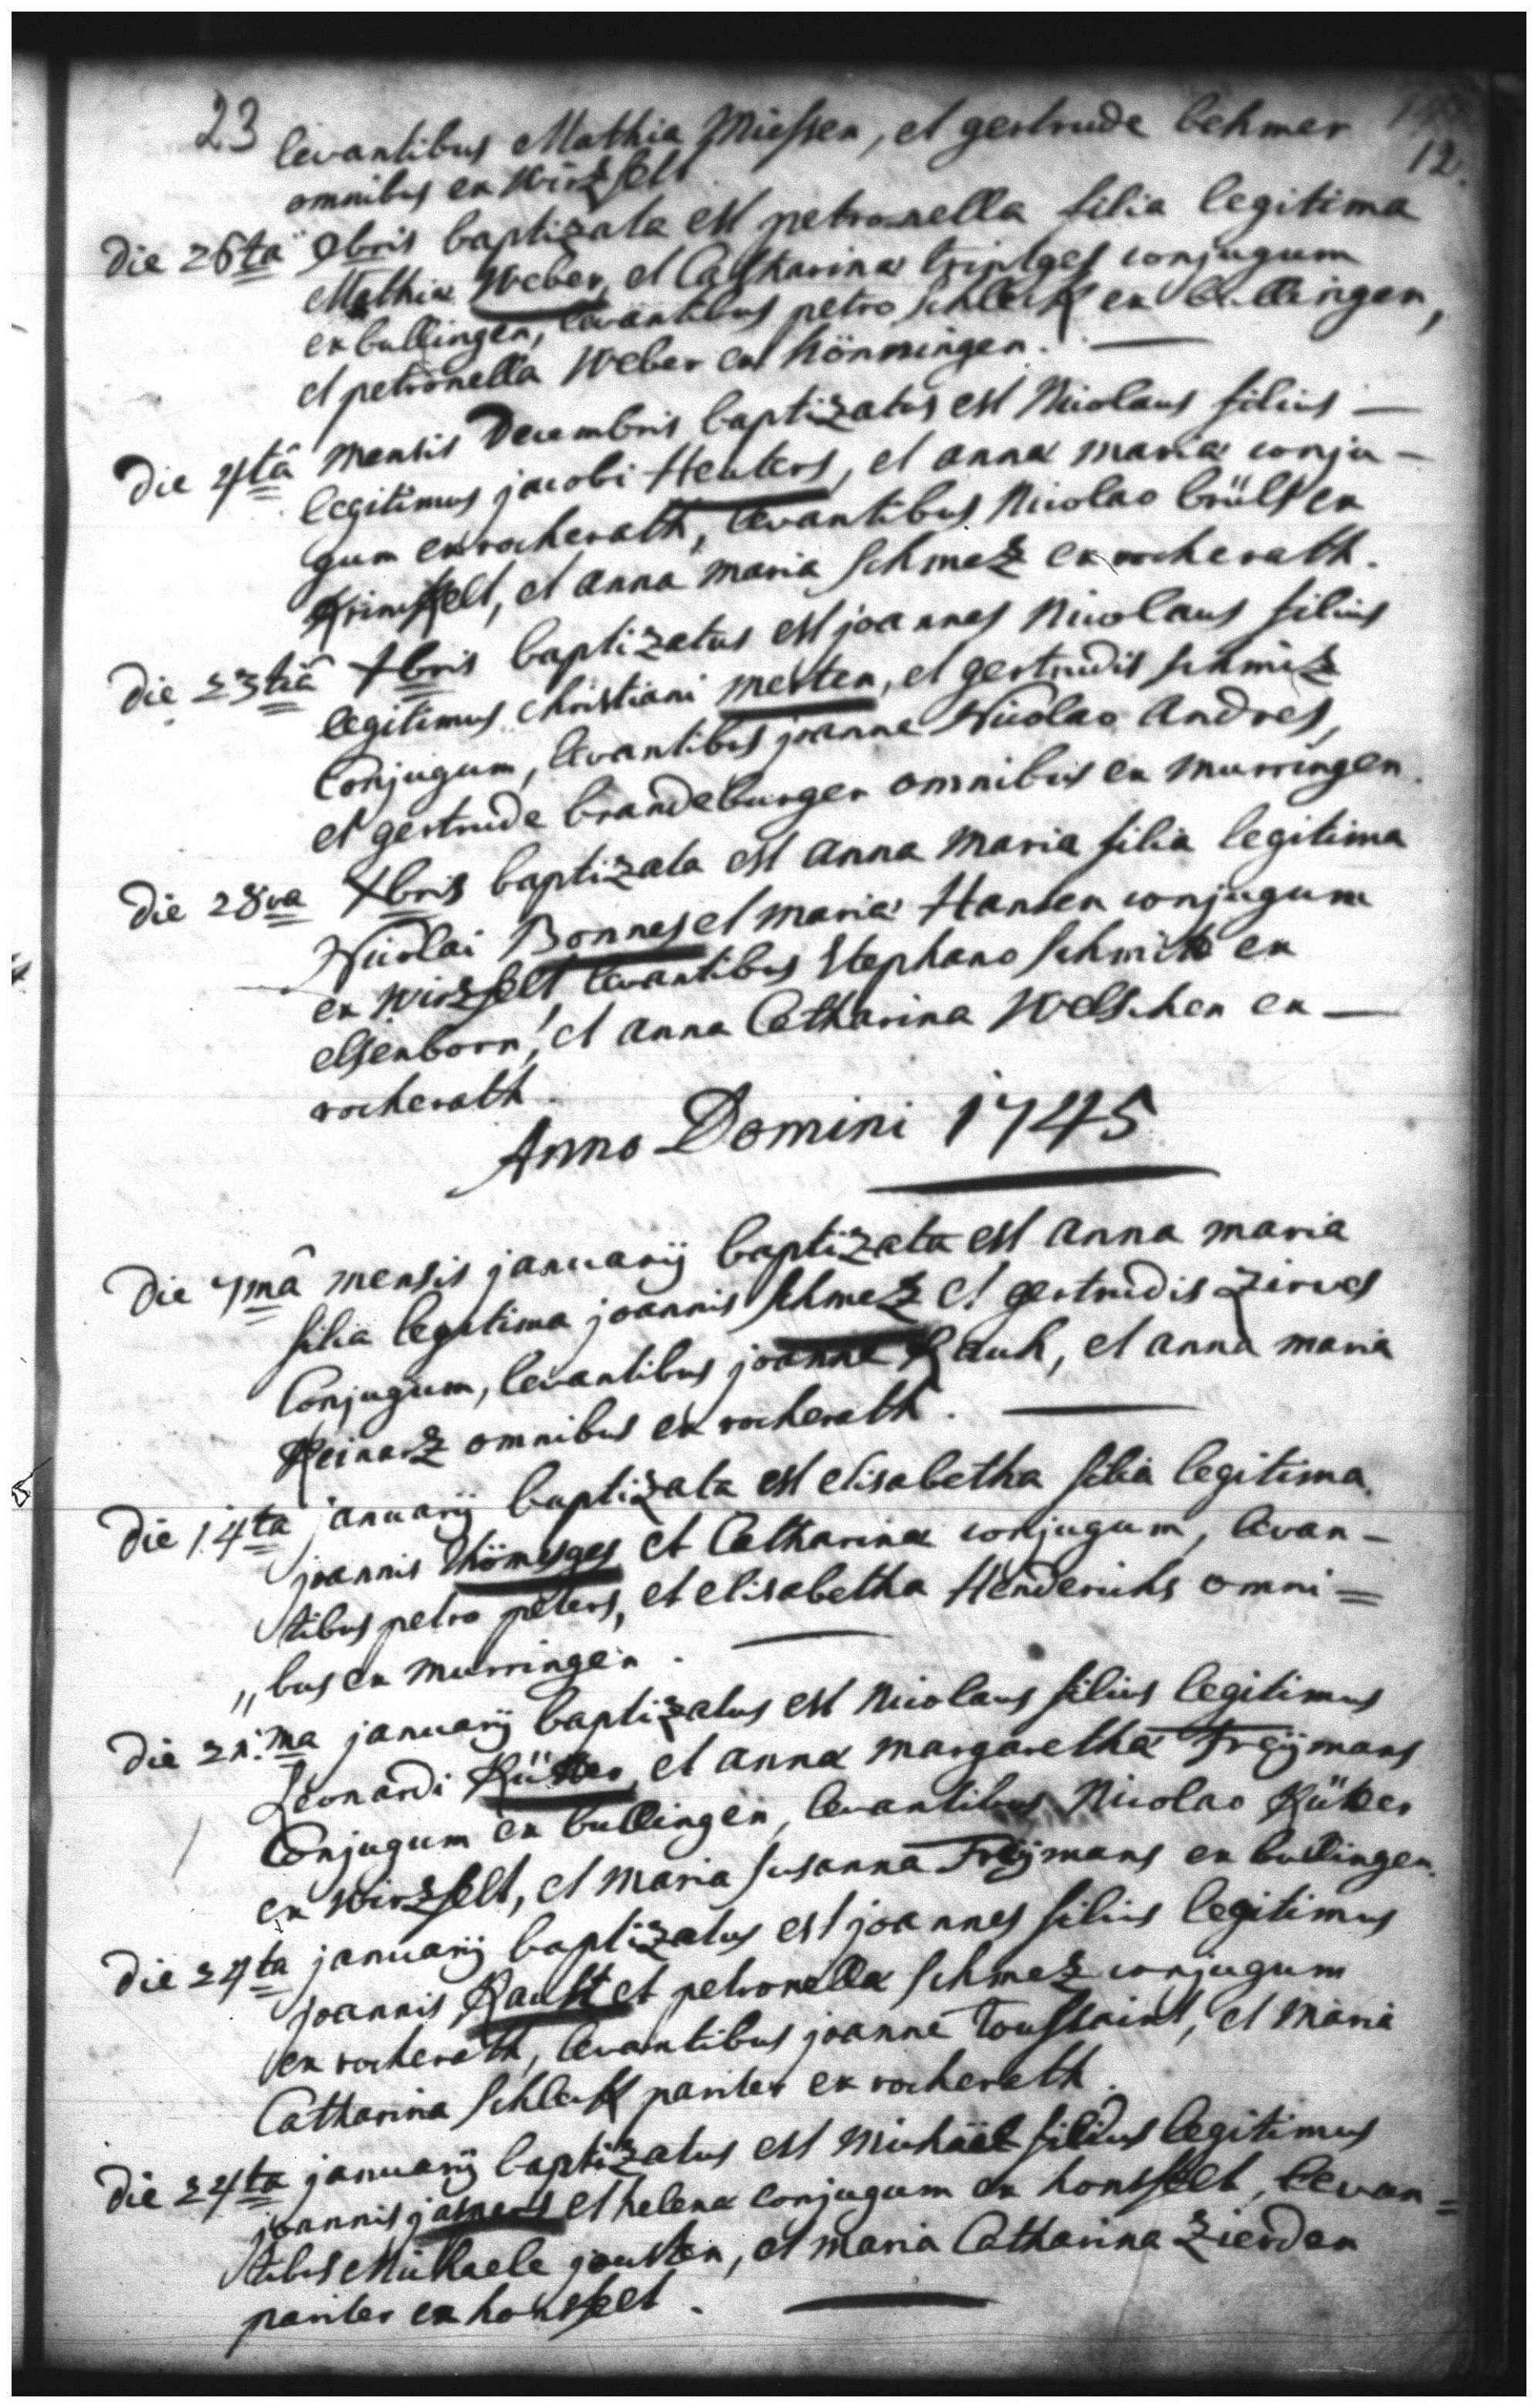 23
12.
levantibus Mathia Miessen, et gertrude behmer
omnibus ex Wirzfelt
die 26ta 9bris baptizata est petronella filia legitima
Mathiæ Weber, et Catharinæ triptges conjugum
ex bullingen, levantibus petro schleck ex bullingen,
et petronella Weber ex hönningen. —
die 4tâ mensis Decembris baptizatus est Nicolaus filius —
legitimus jacobi Heuters, et annæ mariæ conju-
gum ex rocherath, levantibus Nicolao brüls ex
Krinkelt, et anna maria schmez ex rocherath.
die 23tiâ Xbris baptizatus est joannes Nicolaus filius
legitimus christiani merten, et gertrudis schmiz
Conjugum, levantibus joanne Nicolao Andres,
et gertrude brandeburger omnibus ex murringen.
die 28va Xbris baptizata est anna Maria filia legitima
Nicolai Bonnes et mariæ Hansen conjugum
ex Wirzfelt, levantibus Stephano schmit ex
elsenborn, et anna Catharina Welschen ex —
rocherath.
Anno Domini 1745
die 7mâ mensis januarij baptizata est anna maria
filia legitima joannis schmez et gertrudis zirves
Conjugum, levantibus joanne Rauh, et anna maria
Reinarz omnibus ex rocherath. —
die 14ta januarij baptizata est elisabetha filia legitima
joannis thömesges et Catharinæ conjugum, levan-
tibus petro peters, et elisabetha Henderichs omni=
„bus ex murringen. —
die 21.ma januarij baptizatus est Nicolaus filius legitimus
Leonardi Küpper, et annæ margarethæ Freÿmans
Conjugum ex bullingen, levantibus Nicolao Küper
ex Wirzfelt, et maria susanna Freÿmans ex bullingen.
die 24ta januarij baptizatus est joannes filius legitimus
joannis Raust et petronellæ schmez conjugum
ex rocherath, levantibus joanne Toussaint, et maria
Catharina schleck pariter ex rocherath.
die 24ta januarij baptizatus est Michäel filius legitimus
joannis jaspers et helenæ conjugum ex honsfelt, levan=
tibus Michaele jousten, et maria Catharina zierden
pariter ex honsfelt. —